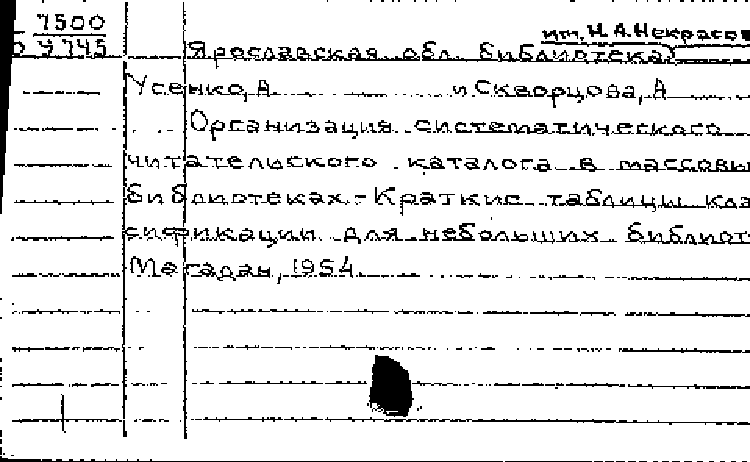 7500
У745
им. Н.А.Некрасов
Ярославская обл. библиотека
Усенко, А и Скворцова, А
Организация систематического
читательского каталога в массовы
библиотеках.-Краткие таблицы клас
сификации для небольших библиот
Магадан, 1954